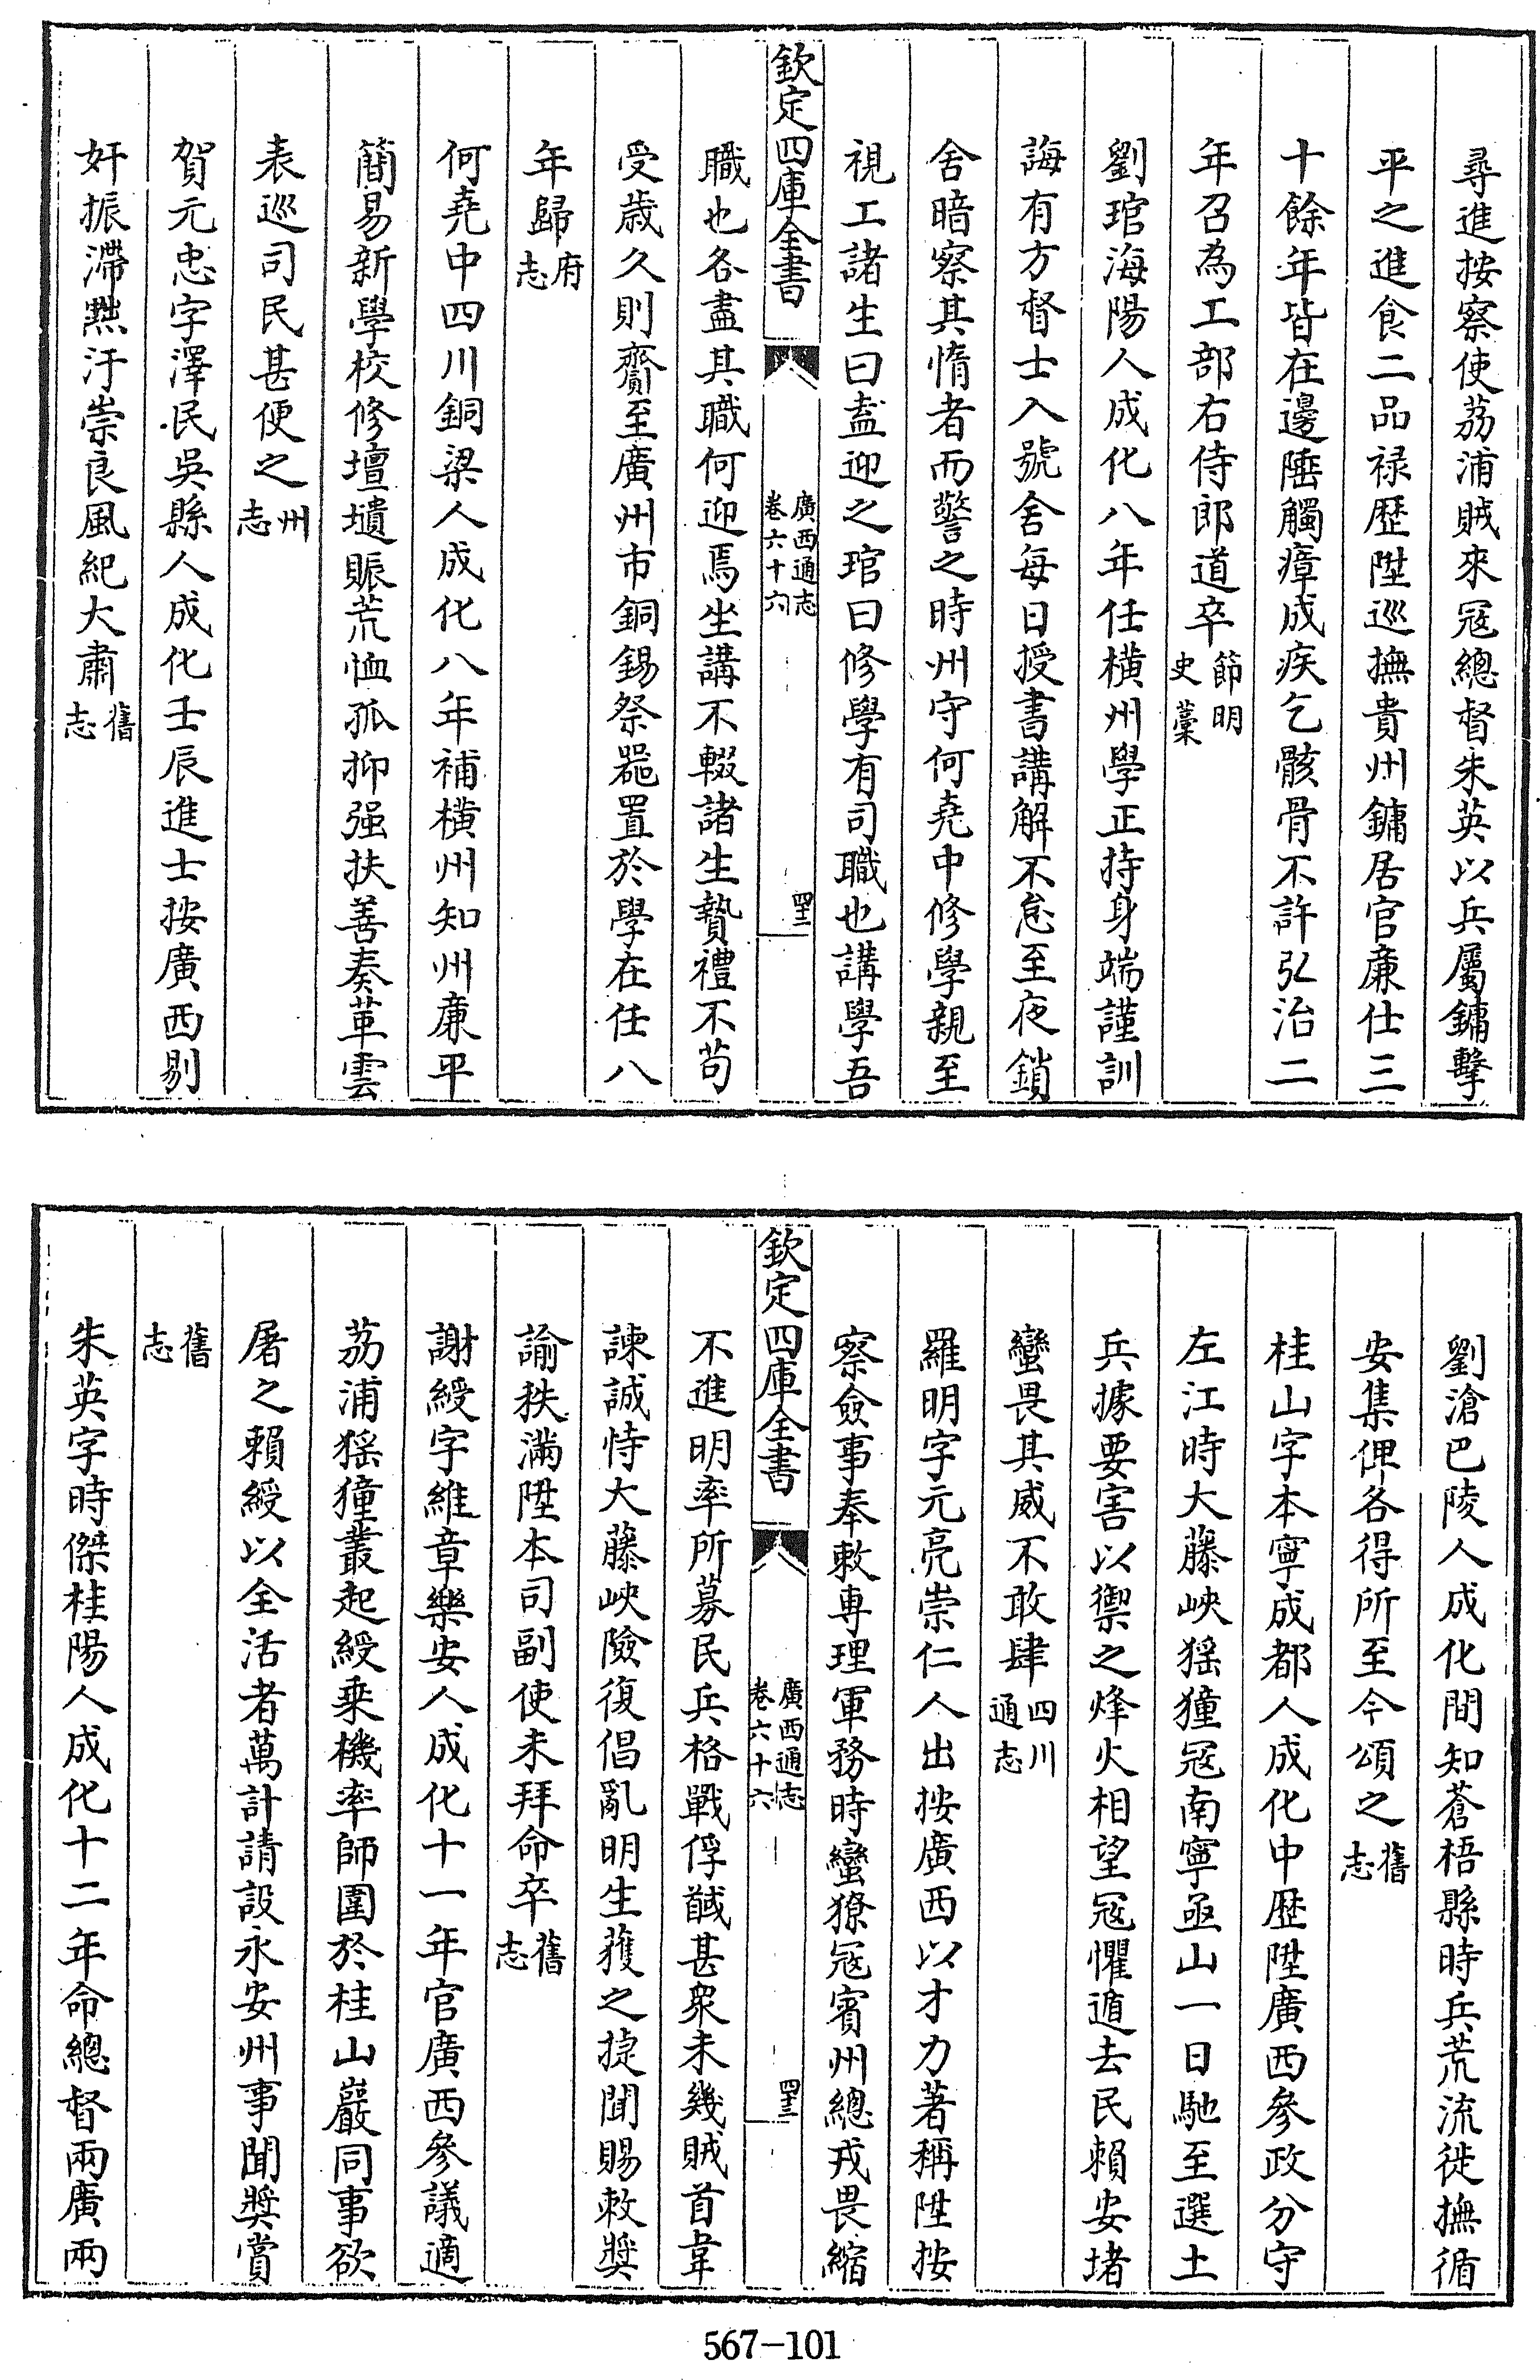 尋進按察使荔浦賊來冦總督朱英以兵屬鏞擊
平之進食二品禄歴陞巡撫貴州鏞居官亷仕三
十餘年皆在邊陲觸瘴成疾乞骸骨不許弘治二
年召為工部右侍郎道卒節明史藁
劉琯海陽人成化八年任橫州學正持身端謹訓
誨有方督士入號舍每日授書講解不怠至夜鎖
舍暗察其惰者而警之時州守何堯中修學親至
視工諸生曰盍迎之琯曰修學有司職也講學吾
欽定四庫全書
廣西通志
卷六十六
四十二
職也各盡其職何迎焉坐講不輟諸生贄禮不苟
受歳久則齎至廣州市銅錫祭噐置於學在任八
年歸府志
何堯中四川銅梁人成化八年補橫州知州亷平
簡易新學校修壇壝賑荒恤孤抑强扶善奏革雲
表巡司民甚便之州志
賀元忠字澤民吳縣人成化壬辰進士按廣西剔
奸振滯黜汙崇良風紀大肅舊志
劉滄巴陵人成化間知蒼梧縣時兵荒流徙撫循
安集俾各得所至今頌之舊志
桂山字本寧成都人成化中歴陞廣西參政分守
左江時大藤峽猺獞冦南寧亟山一日馳至選土
兵據要害以禦之烽火相望冦懼遁去民賴安堵
蠻畏其威不敢肆四川通志
羅明字元亮崇仁人出按廣西以才力著稱陞按
察僉事奉敕專理軍務時蠻獠冦賓州總戎畏縮
欽定四庫全書
廣西通志
卷六十六
四十三
不進明率所募民兵格戰俘馘甚衆未幾賊首韋
諫誠恃大藤峽險復倡亂明生蒦之捷聞賜敕奬
諭秩滿陞本司副使未拜命卒舊志
謝綬字維章樂安人成化十一年官廣西參議適
荔浦猺獞叢起綬乗機率師圍於桂山巖同事欲
屠之賴綬以全活者萬計請設永安州事聞奬賞
舊志
朱英字時傑桂陽人成化十二年命總督兩廣兩
567-101